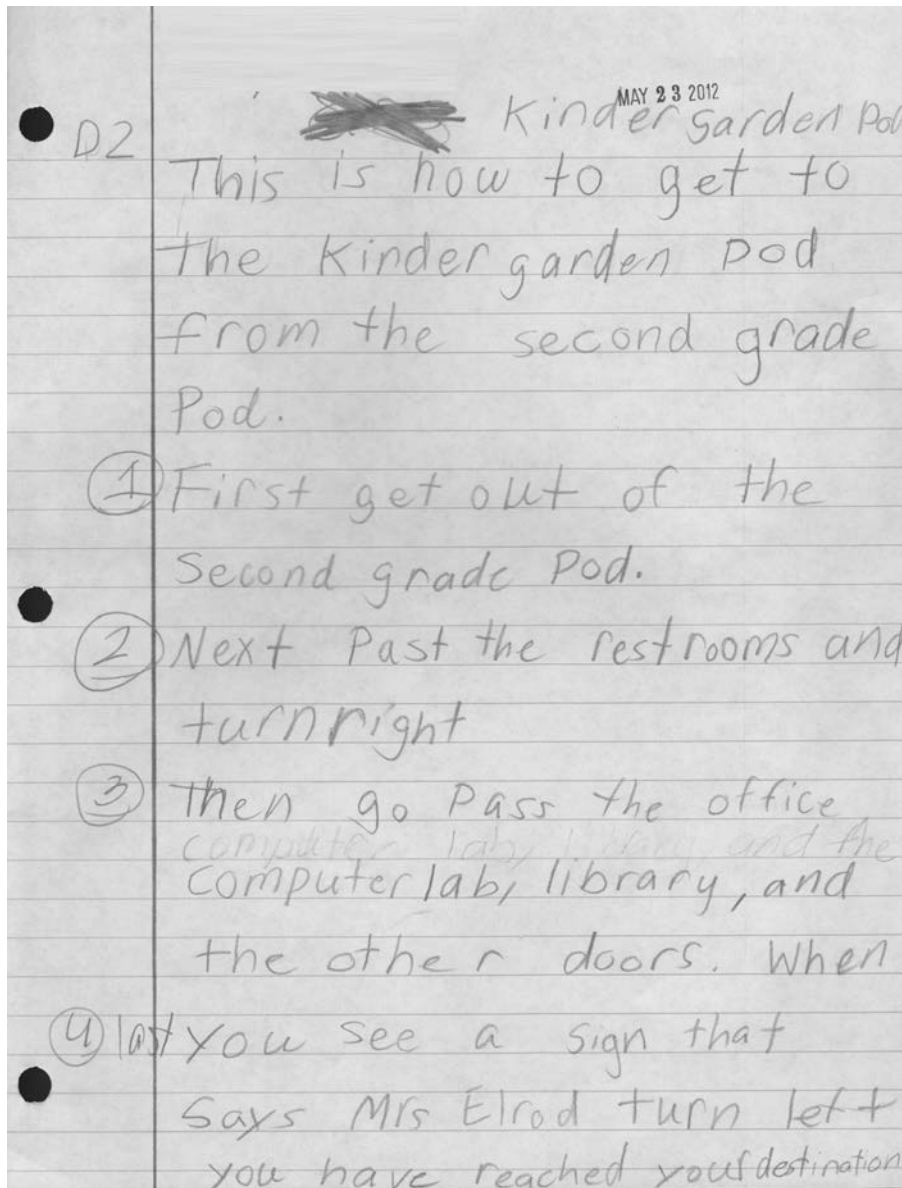 MAY 23 2012
D2 Kindergarden Pod
This is how to get to
the Kindergarden Pod
from the second grade
Pod.
1 First get out of the
Second grade Pod.
2 Next Past the restrooms and
turn right
3 Then go Pass the office
computer lab, library, and the
Computer lab, library, and
the other doors. When
4 last you see a sign that
Says Mrs Elrod turn left
you have reached your destination